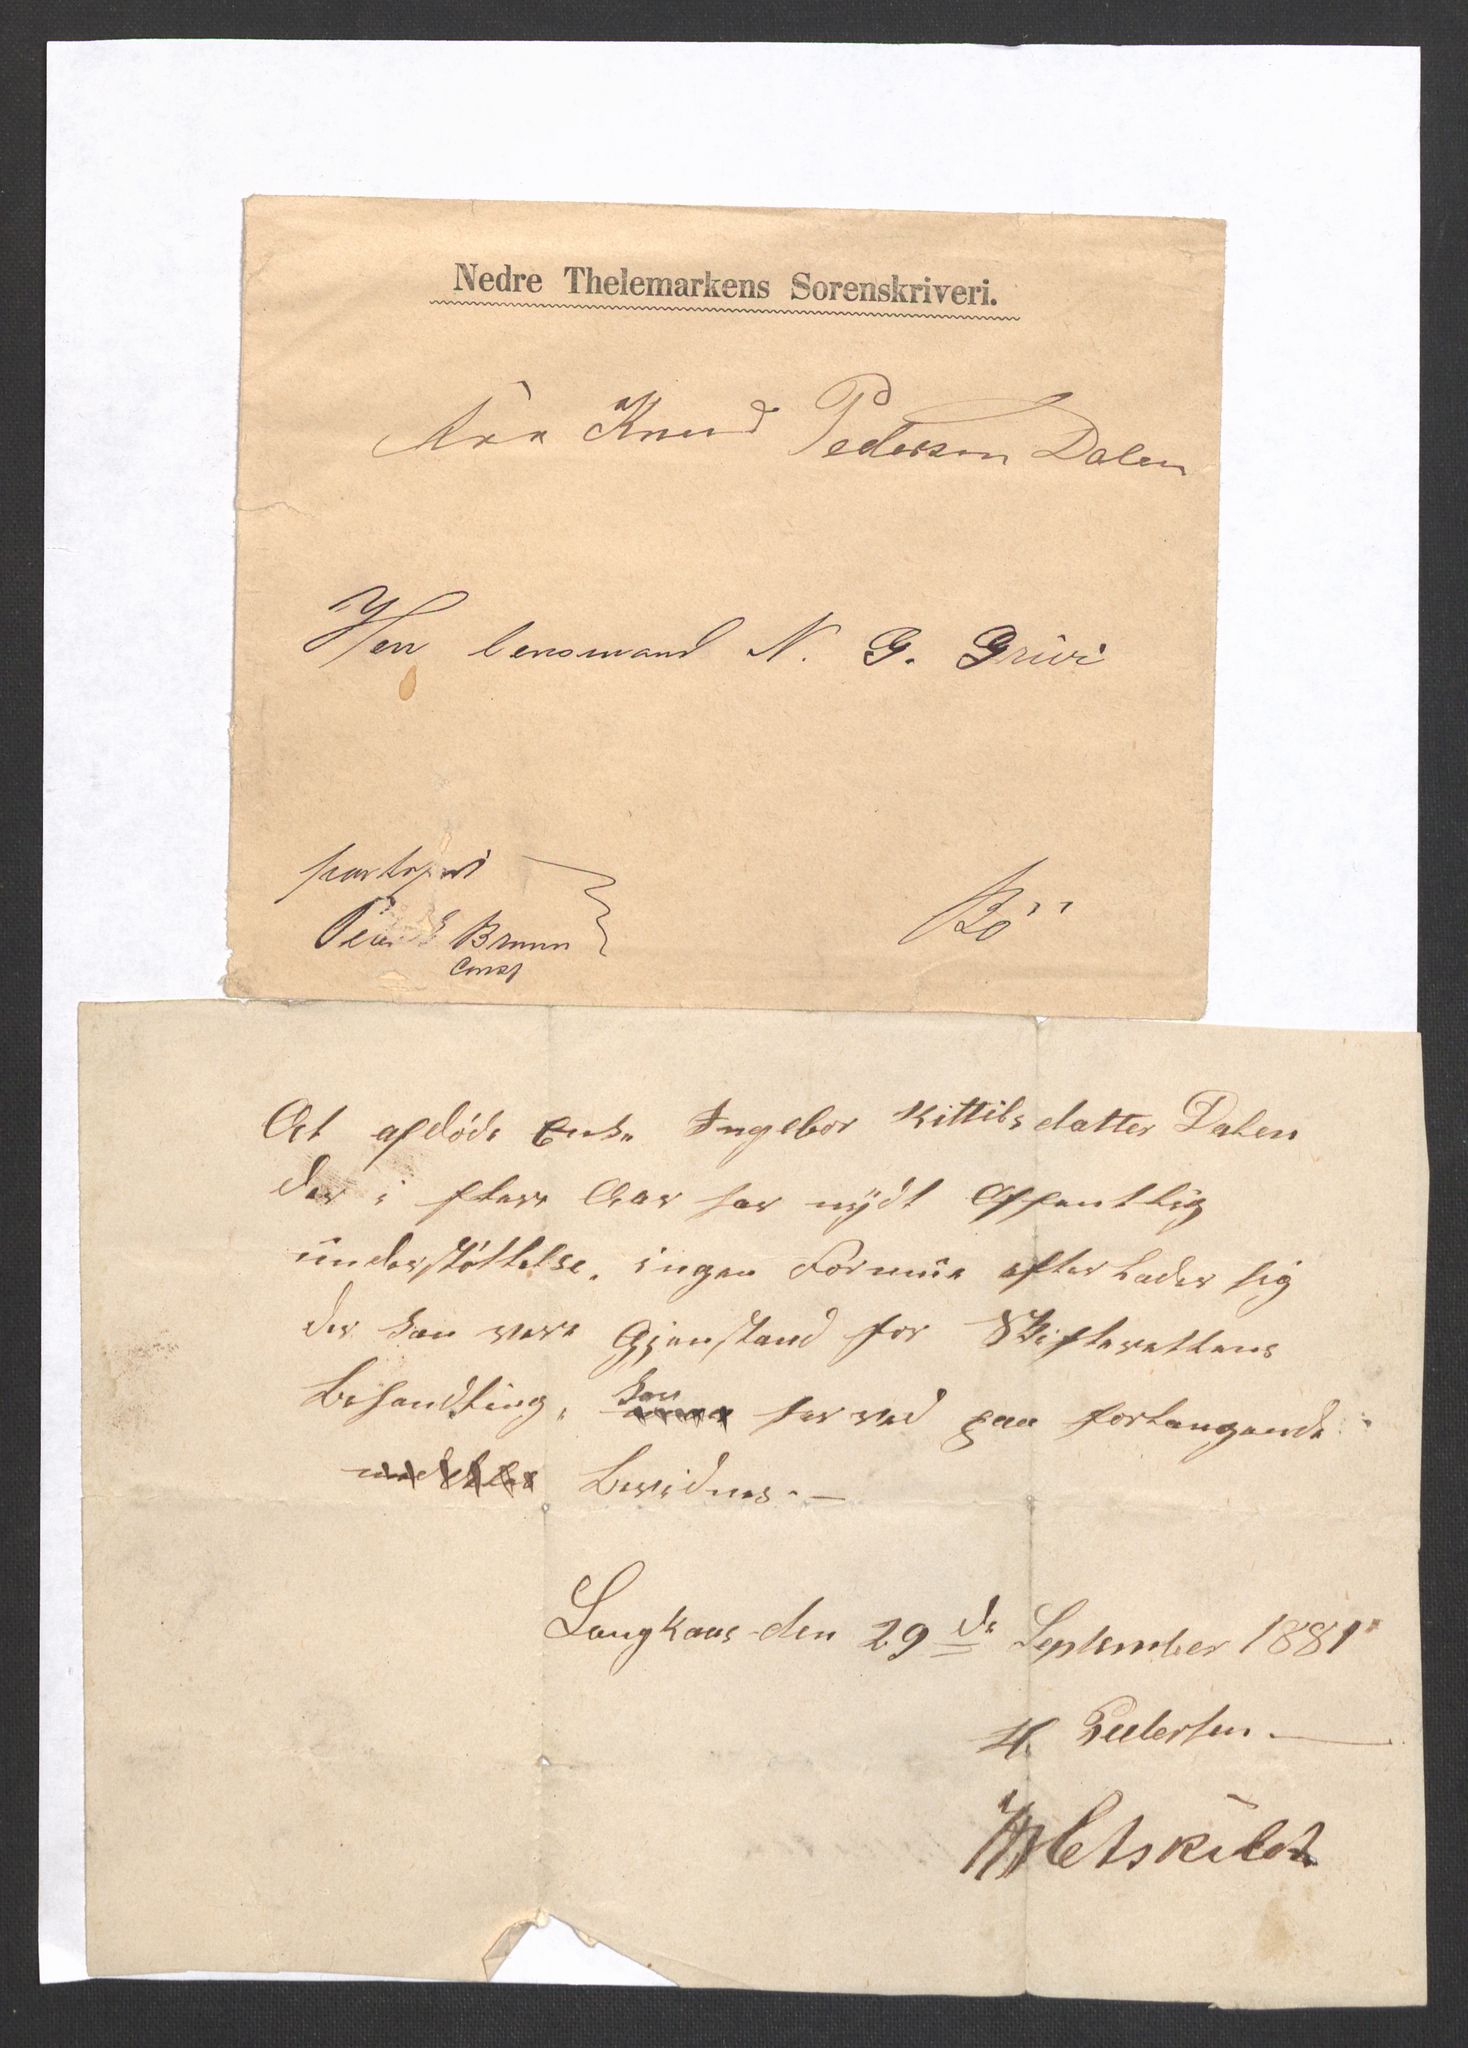 Nedre Thelemarkens Sorenskriveri.
Knud Pedersen Dalen
Herr lensmand N. G. Grivi
portofri
Bruun
const
Bö
At afdøde Enke Ingebor Kittilsdatter Dalen
der i flere Aar har nÿdt Offentlig
understøttelse, ingen Formue efterlader sig
der kan være Gjenstand for Skifterettens
Behandling, kan herved paa forlangende
bevidnes.—
Langkaas den 29de September 1881
H. Pedersen